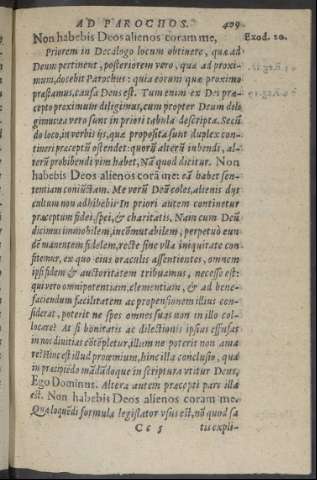 AD PAROCHOS. 409
Non habebis Deos alienos coram me, Exod. 20.
Priorem in Decálogo locum obtinere, quæ ad
Deum pertinent, posteriorem vero, quæ ad proxi-
mum, docebit Parochus: quia eorum quæ proximo
præstamus, causa Deus est. Tum enim ex Dei præ-
cepto proximum diligimus, cum propter Deum dili
gimus: ea vero sunt in priori tabula descripta. Secũ
do loco, in verbis ijs, quæ proposita sunt duplex con-
tineri præceptũ ostendet: quorũ alterũ iubendi, al-
terũ prohibendi vim habet, Nã quod dicitur. Non
habebis Deos alienos corã me: eã babet sen-
tentiam coniũctam. Me verũ Deũ coles, alienis dijs
cultum non adhibebis. In priori autem continetur
præceptum fidei, spei, & charitatis, Nam cum Deũ
dicimus immobilem, incõmutabilem, perpetuò eun-
dẽ manentem fidelem, recte sine vlla iniquitate con
fitemur, ex quo eius oraculis assentientes, omnem
ipsi fidem & auctoritatem tribuamus, necesso est:
qui vero omnipotentiam, clementiam, & ad bene-
faciendum facilitatem ac propensionem illius con-
siderat, poterit ne spes omnes suas non in illo col-
locare? At si bonitatis ac dilectionis ipsius effusas
in nos diuitias cõtẽpletur, illum ne poterit non ama
re? Hinc est illud proœmium, hinc illa conclusio, quæ
in præcipiẽdo mãdãdoque in scriptura vtitur Deus,
Ego Dominus. Altera autem præcepti pars illa
est. Non habebis Deos alienos coram me.
Qua loquẽdi formula legislator vsus est, nõ quod sa
Cc 5 tis expli-